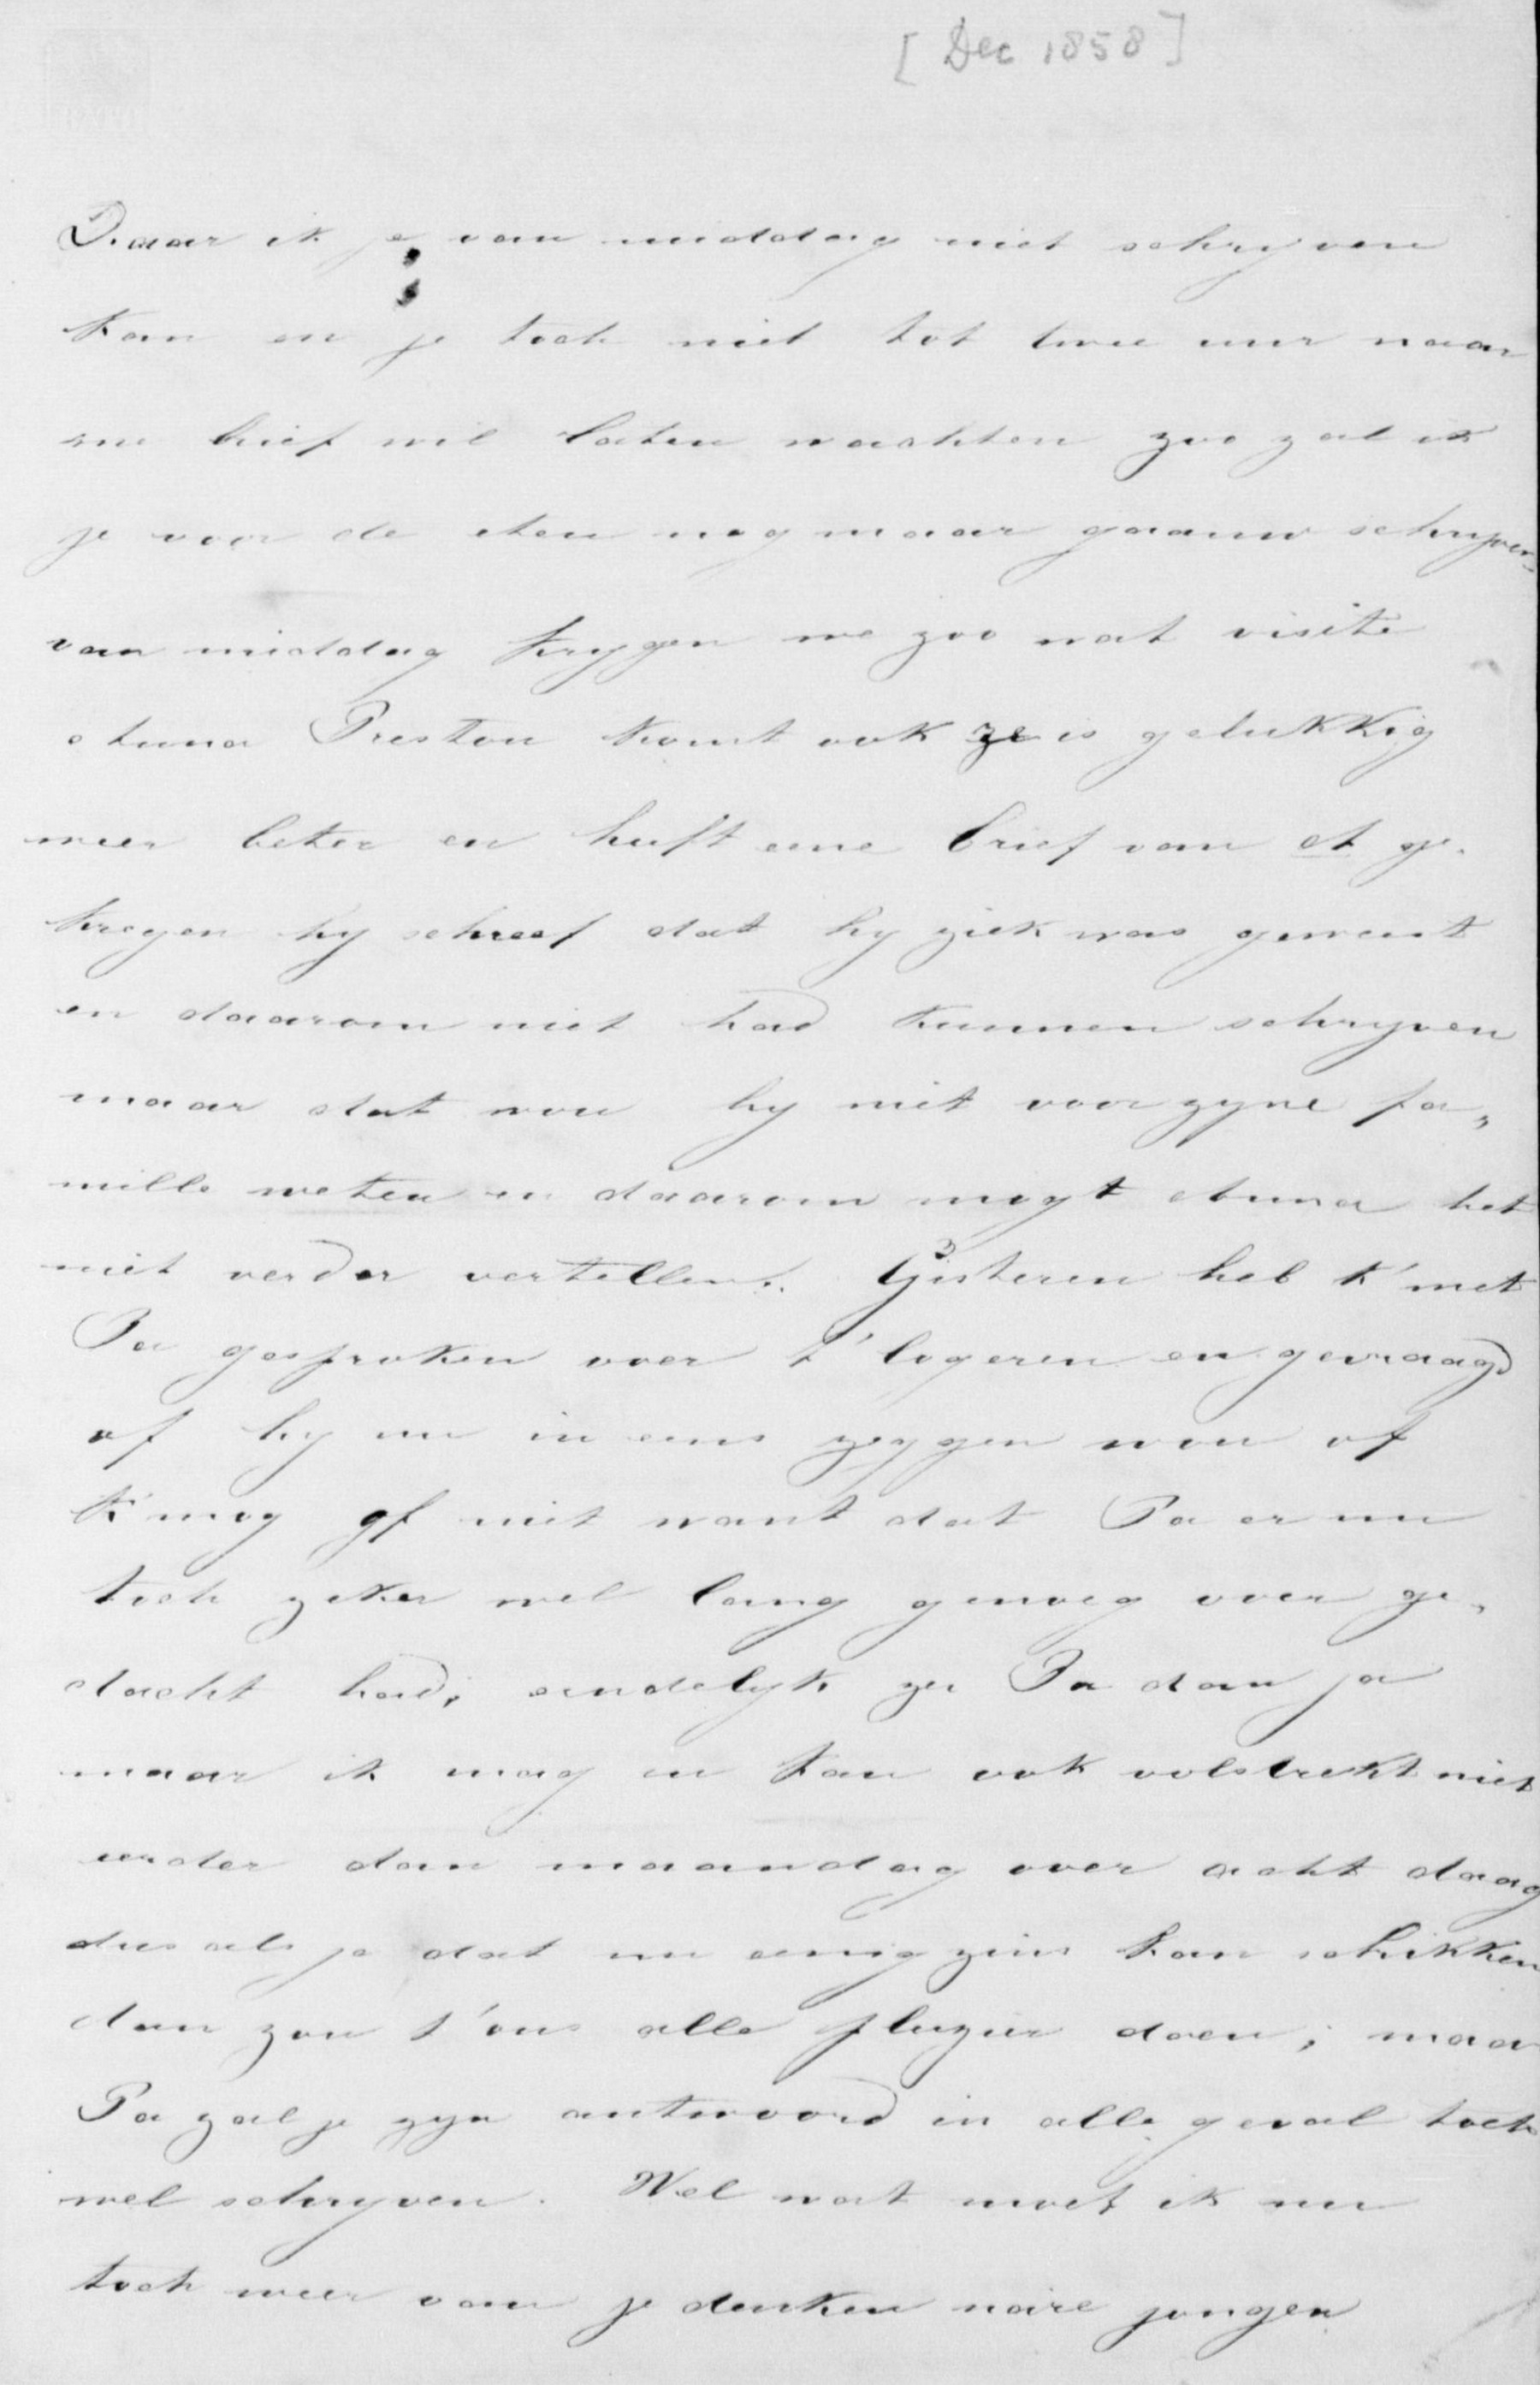 [Dec 1858]
Daar ik je van middag niet schryven
kan en je toch niet tot twee uur naar
me brief wil laten wachten zoo zal ik
je voor de eten nog maar gaauw schryven,
van middag krygen we zoo wat visite
Anna Preston komt ook ze is gelukkig
weer beter en heeft eene brief van A ge„
kregen hy schreef dat hy ziek was geweest
en daarom niet had kunnen schryven
maar dat wou hy niet voor zyne fa„
mille weten en daarom mogt Anna het
niet verder vertellen. Gisteren heb k' met
Pa gesproken over t' logeren en gevraagd
of hy nu in eens zeggen wou of
k' mog of niet want dat Pa er nu
toch zeker wel lang genoeg over ge„
dacht had; eindelyk zei Pa dan ja
maar ik mag en kan ook volstrekt niet
eerder dan maandag over acht daag
dus als je dat nu eenigzins kan schikken
dan zou t' ons alle pluzier doen; maar
Pa zal je zyn antwoord in alle geval toch
wel schryven. Wel wat moet ik nu
toch weer van je denken naire jongen